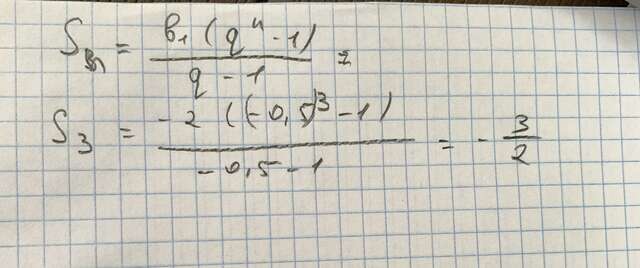 Sₙ = b₁ (qⁿ - 1) / q - 1 =
S₃ = -2 ((-0,5)³ - 1) / -0,5 - 1 = - 3/2